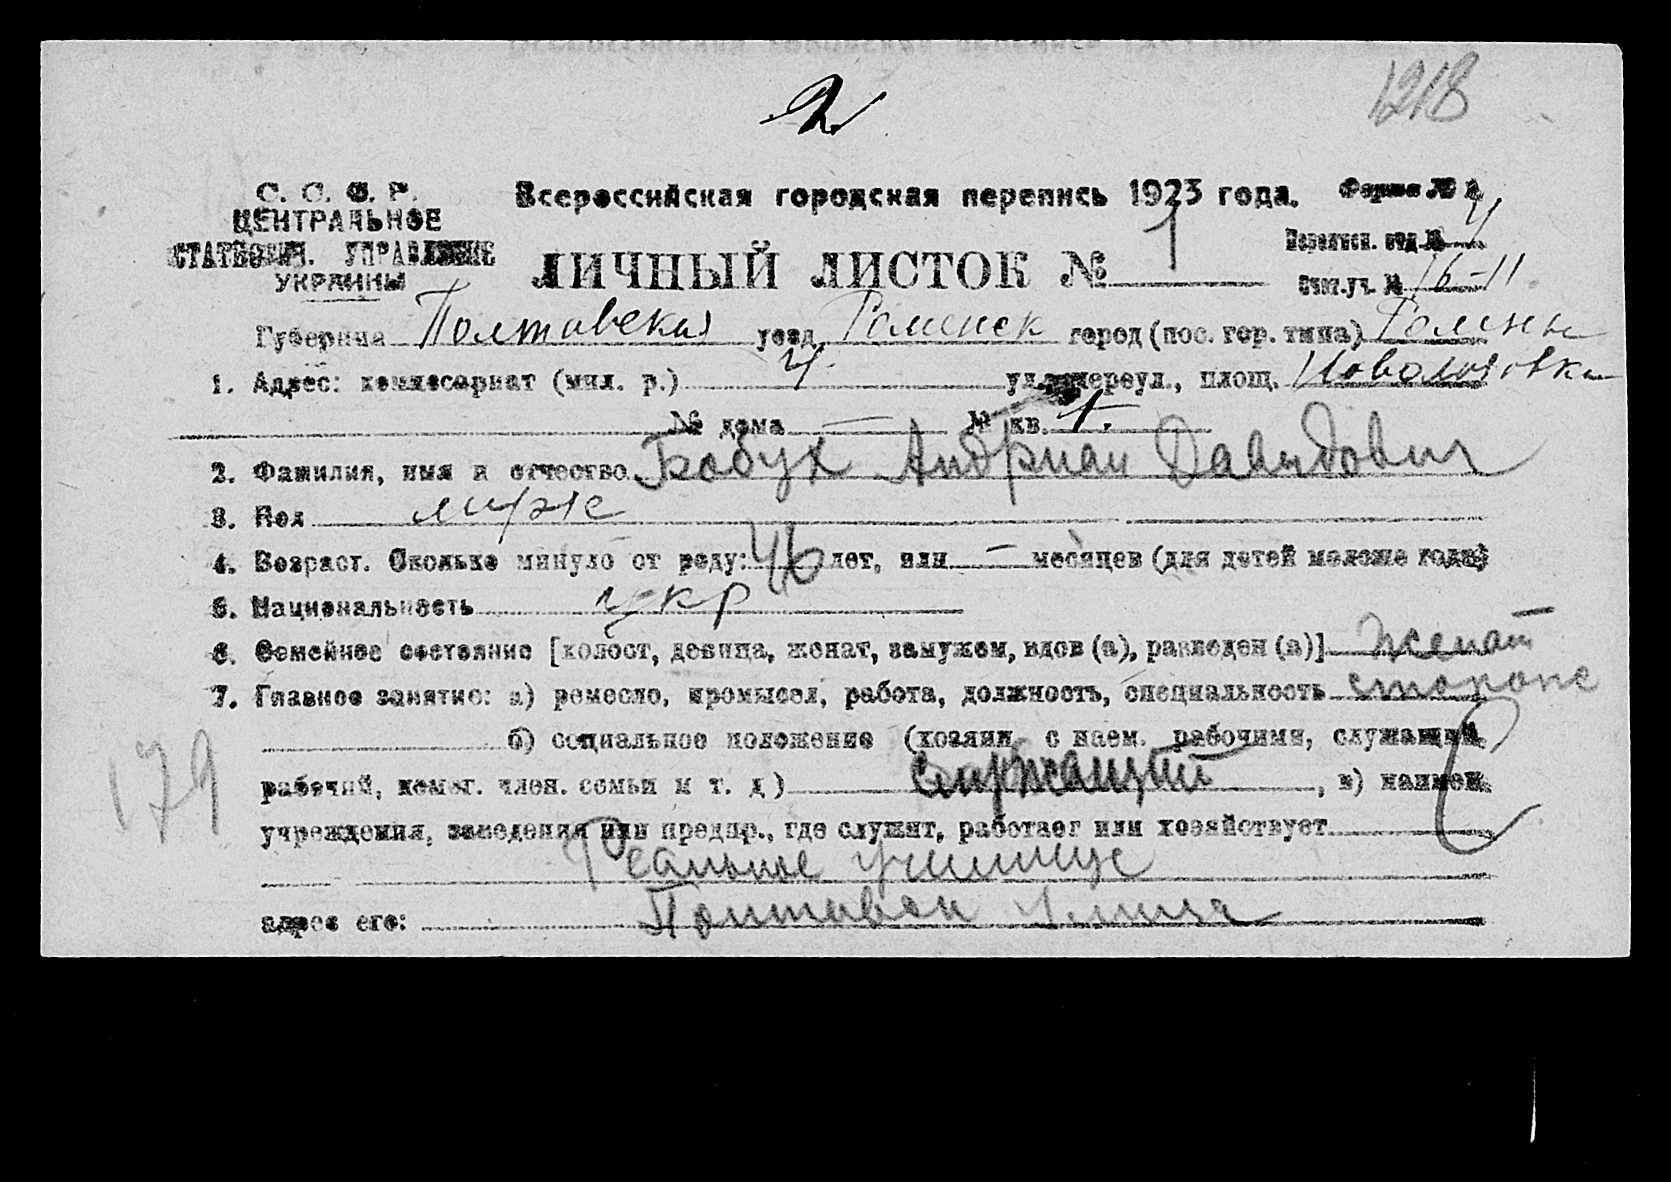 2
1218
С. С. С. Р.
ЦЕНТРАЛЬНОЕ
СТАТИСТИЧ. УПРАВЛЕНИЕ
УКРАИНЫ
Всероссийская городская перепись 1923 года.
Форма № 2
ЛИЧНЫЙ ЛИСТОК № 1
Переписн. отд. № 4
Счет.уч. № 16-11
Губерния Полтавская уезд Роменск город (пос. гор. типа) Ромны
1. Адрес: комиссариат (мил. р.) 4. ул., переул., площ.
№ дома — № кв. 1.
2. Фамилия, имя и отчество Бабух Андриан Давидович
3. Пол муж
4. Возраст. Сколько минуло от роду: 46 лет, или — месяцев (для детей моложе года)
5. Национальность укр
6. Семейное состояние [холост, девица, женат, замужем, вдов (а), разведен (а)] Женат
7. Главное занятие: а) ремесло, промысел, работа, должность, специальность сторож
б) социальное положение (хозяин с наем. рабочими, служащий,
рабочий, помог. член. семьи и т. д) Служащий, в) наимен.
учреждения, заведения или предпр., где служит, работает или хозяйствует
Реальное училище
адрес его: Полтавск улица
179